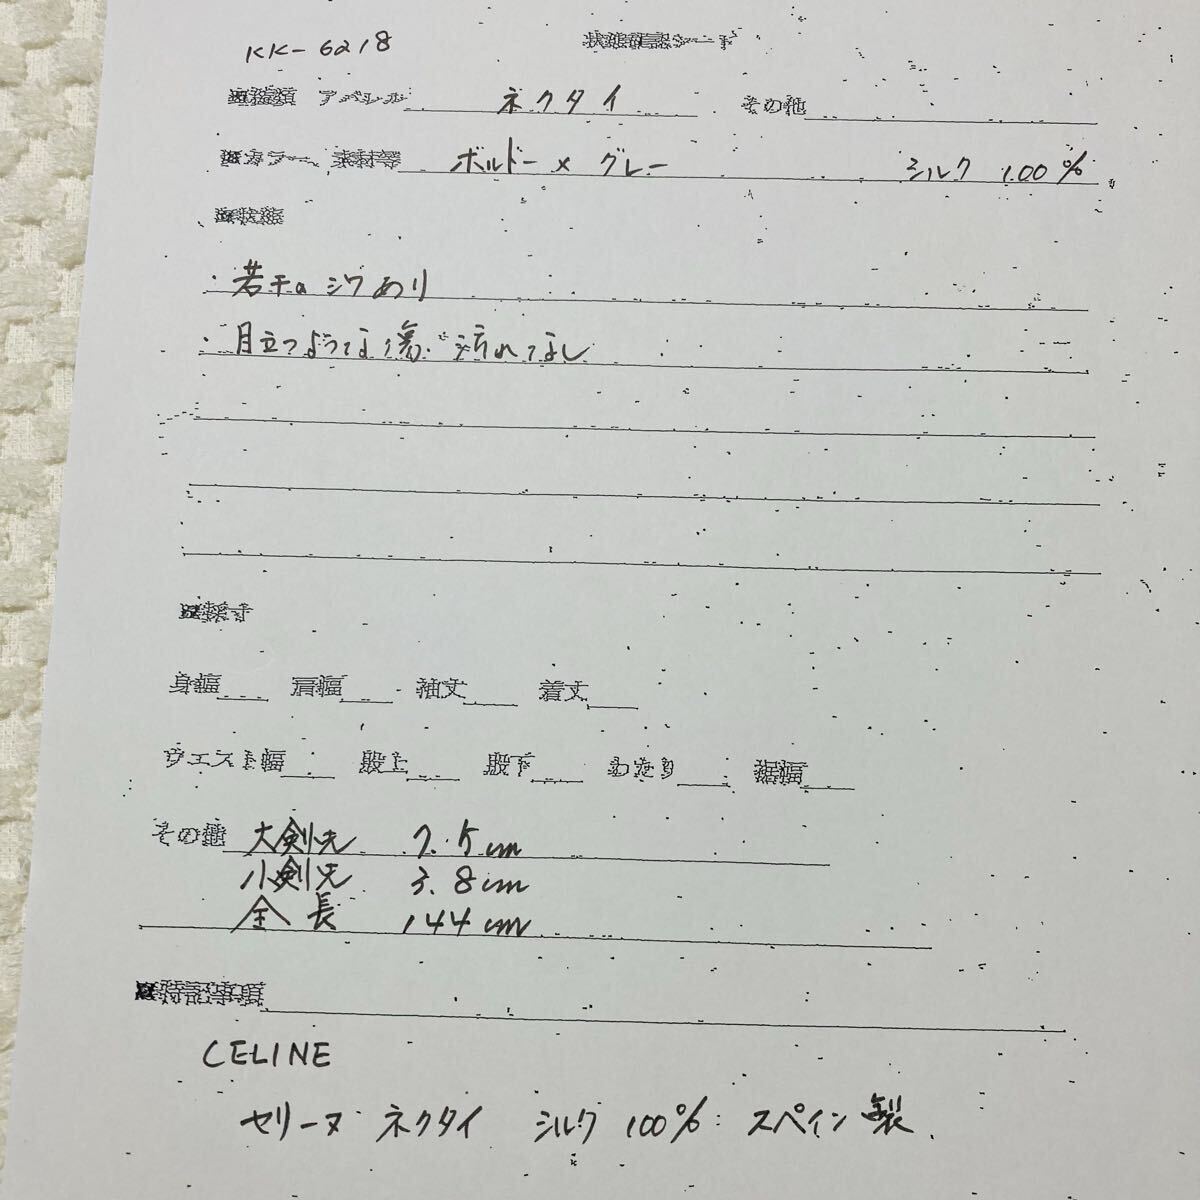 KK-6218 状態確認シート
■種類 アパレル ネクタイ その他
■カラー、素材等 ボルドー × グレー シルク 100%
■状態
・若干のシワあり
・目立つような傷、汚れなし
■採寸
身幅 肩幅 袖丈 着丈
ウエスト幅 股上 股下 わたり 裾幅
その他 大剣先 7.5cm
小剣先 3.8cm
全長 144cm
■特記事項
CELINE
セリーヌ ネクタイ シルク 100% スペイン製